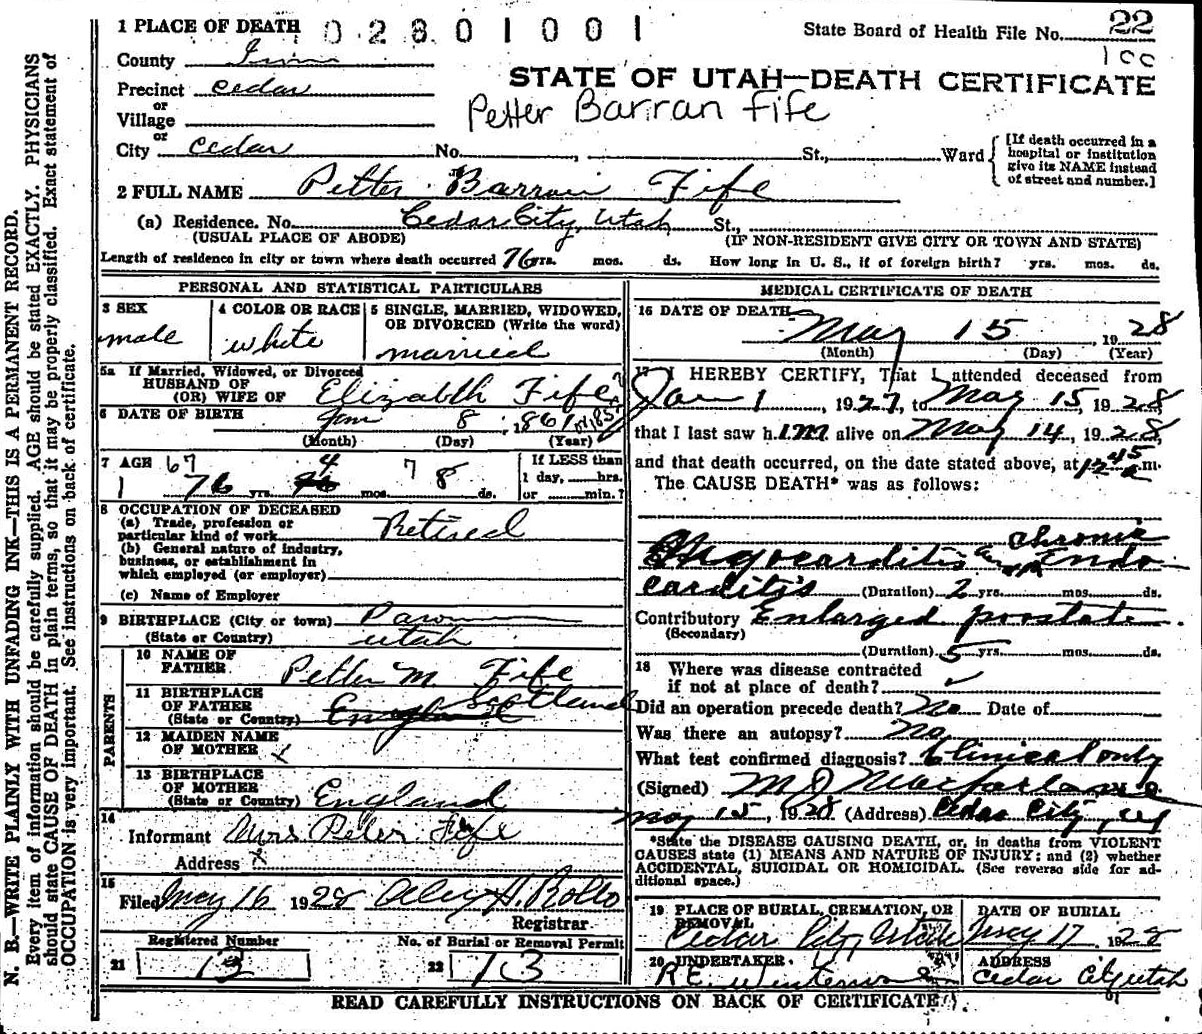 1 PLACE OF DEATH 02801001 State Board of Health File No. 22
100
County Iron
STATE OF UTAH—DEATH CERTIFICATE
Precinct Cedar
or
Petter Barran Fife
Village
or
City Cedar No. St., Ward
[If death occurred in a
hospital or institution
give its NAME instead
of street and number.]
2 FULL NAME Petter Barran Fife
(a) Residence. No. Cedar City, Utah St.,
(USUAL PLACE OF ABODE) (IF NON-RESIDENT GIVE CITY OR TOWN AND STATE)
Length of residence in city or town where death occurred 76 yrs. mos. ds. How long in U. S., if of foreign birth? yrs. mos. ds.
PERSONAL AND STATISTICAL PARTICULARS
3 SEX
male
4 COLOR OR RACE
white
5 SINGLE, MARRIED, WIDOWED,
OR DIVORCED (Write the word)
married
5a If Married, Widowed, or Divorced
HUSBAND OF
(OR) WIFE OF Elizabeth Fife
6 DATE OF BIRTH Jan 8 1861 or 185?
(Month) (Day) (Year)
7 AGE 67 4 7
1 76 yrs. mos. 8 ds.
If LESS than
1 day, hrs.
or min.?
8 OCCUPATION OF DECEASED
(a) Trade, profession or
particular kind of work Retired
(b) General nature of industry,
business, or establishment in
which employed (or employer)
(c) Name of Employer
9 BIRTHPLACE (City or town)
(State or Country) Utah
PARENTS
10 NAME OF
FATHER Petter M Fife
11 BIRTHPLACE
OF FATHER Scotland
(State or Country) England
12 MAIDEN NAME
OF MOTHER x
13 BIRTHPLACE
OF MOTHER
(State or Country) England
14
Informant Mrs Peter Fife
Address x
15
Filed May 16 1928 Alex H. Rollo
Registrar
Registered Number No. of Burial or Removal Permit
21 13 22 13
MEDICAL CERTIFICATE OF DEATH
16 DATE OF DEATH
May 15 1928
(Month) (Day) (Year)
17 I HEREBY CERTIFY, That I attended deceased from
Jan 1, 1927, to May 15, 1928
that I last saw him alive on May 14, 1928,
and that death occurred, on the date stated above, at 12 45 a m.
The CAUSE DEATH* was as follows:
chronic
Myocarditis and Endo
carditis (Duration) 2 yrs. mos. ds.
Contributory Enlarged prostate
(Secondary)
(Duration) 5 yrs. mos. ds.
18 Where was disease contracted
if not at place of death?
Did an operation precede death? No Date of
Was there an autopsy? No
What test confirmed diagnosis? Clinical only
(Signed) M J Macfarlane
May 15, 1928 (Address) Cedar City, Ut
*State the DISEASE CAUSING DEATH, or, in deaths from VIOLENT
CAUSES state (1) MEANS AND NATURE OF INJURY; and (2) whether
ACCIDENTAL, SUICIDAL OR HOMICIDAL. (See reverse side for ad-
ditional space.)
19 PLACE OF BURIAL, CREMATION, OR
REMOVAL
Cedar City, Utah
DATE OF BURIAL
May 17 1928
20 UNDERTAKER
R E.
ADDRESS
Cedar City Utah
READ CAREFULLY INSTRUCTIONS ON BACK OF CERTIFICATE
N. B.—WRITE PLAINLY WITH UNFADING INK—THIS IS A PERMANENT RECORD.
Every item of information should be carefully supplied. AGE should be stated EXACTLY. PHYSICIANS
should state CAUSE OF DEATH in plain terms, so that it may be properly classified. Exact statement of
OCCUPATION is very important. See instructions on back of certificate.